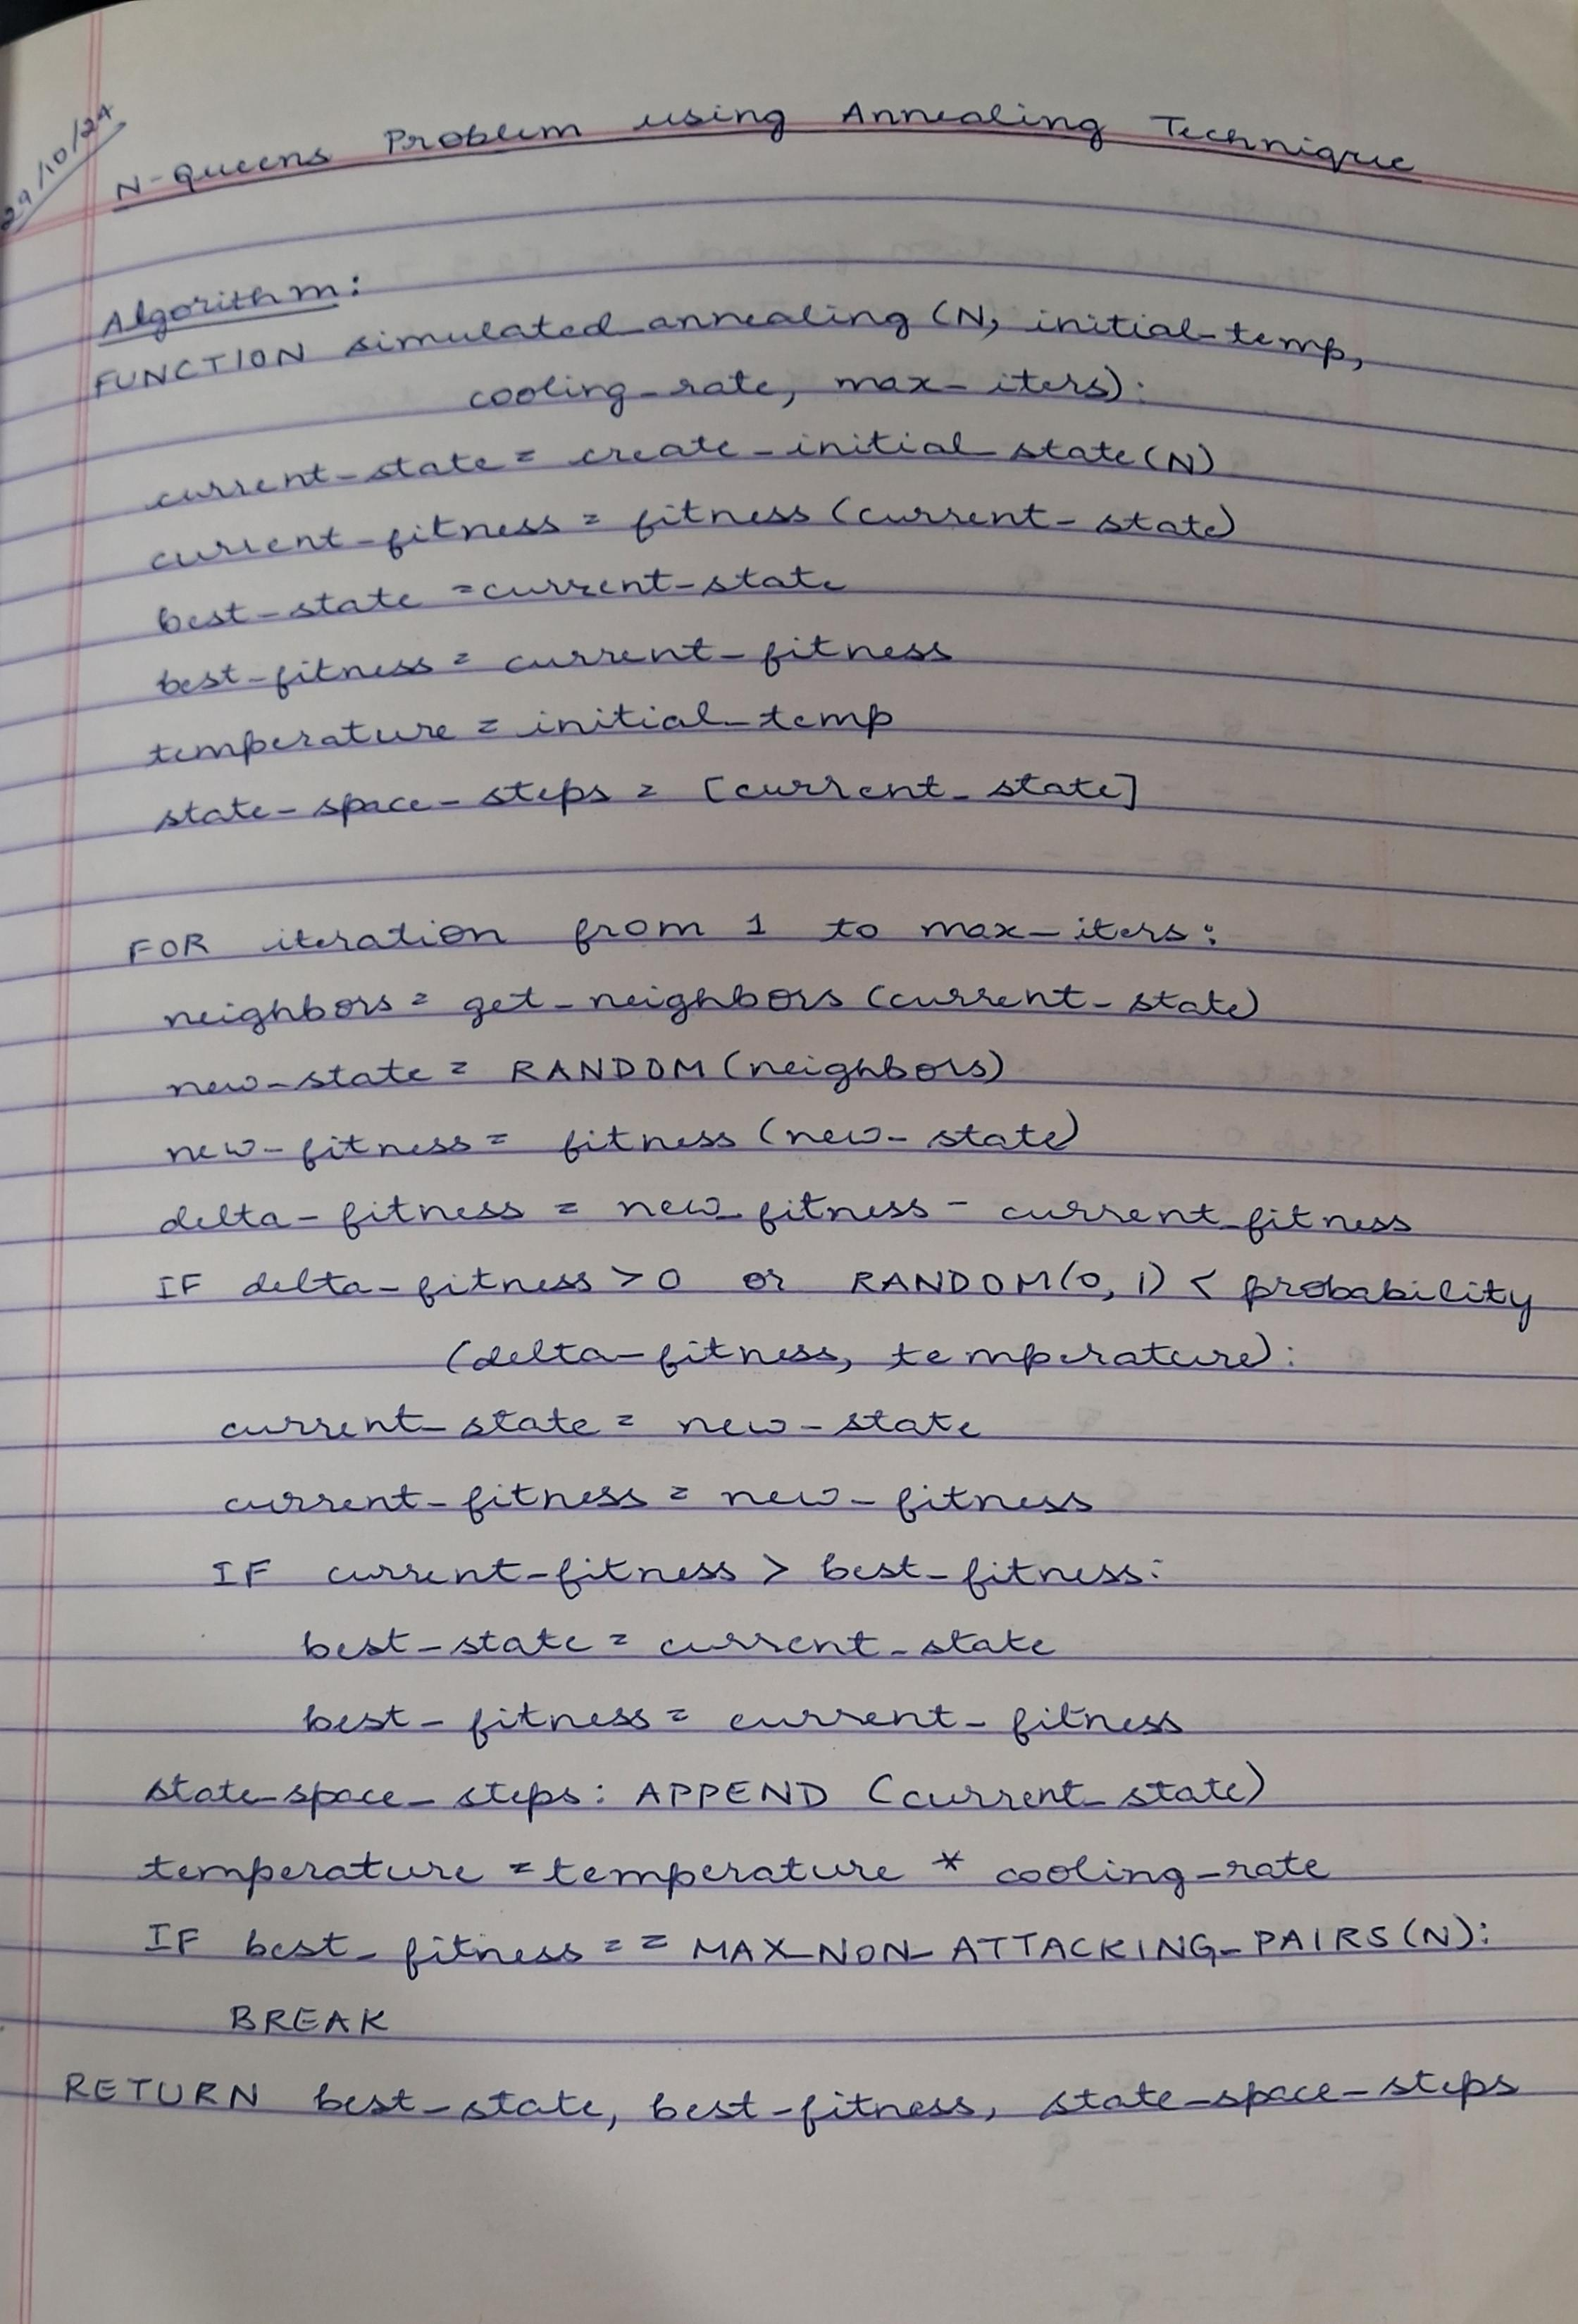 29/10/24
N-Queens Problem using Annealing Technique
Algorithm:
FUNCTION simulated_annealing (N, initial_temp,
cooling_rate, max_iters):
current_state = create_initial_state(N)
current_fitness = fitness (current_state)
best_state = current_state
best_fitness = current_fitness
temperature = initial_temp
state_space_steps = [current_state]
FOR iteration from 1 to max_iters:
neighbors = get_neighbors (current_state)
new_state = RANDOM (neighbors)
new_fitness = fitness (new_state)
delta_fitness = new_fitness - current_fitness
IF delta_fitness > 0 or RANDOM(0, 1) < probability
(delta_fitness, temperature):
current_state = new_state
current_fitness = new_fitness
IF current_fitness > best_fitness:
best_state = current_state
best_fitness = current_fitness
state_space_steps: APPEND (current_state)
temperature = temperature * cooling_rate
IF best_fitness == MAX_NON_ATTACKING_PAIRS(N):
BREAK
RETURN best_state, best_fitness, state_space_steps